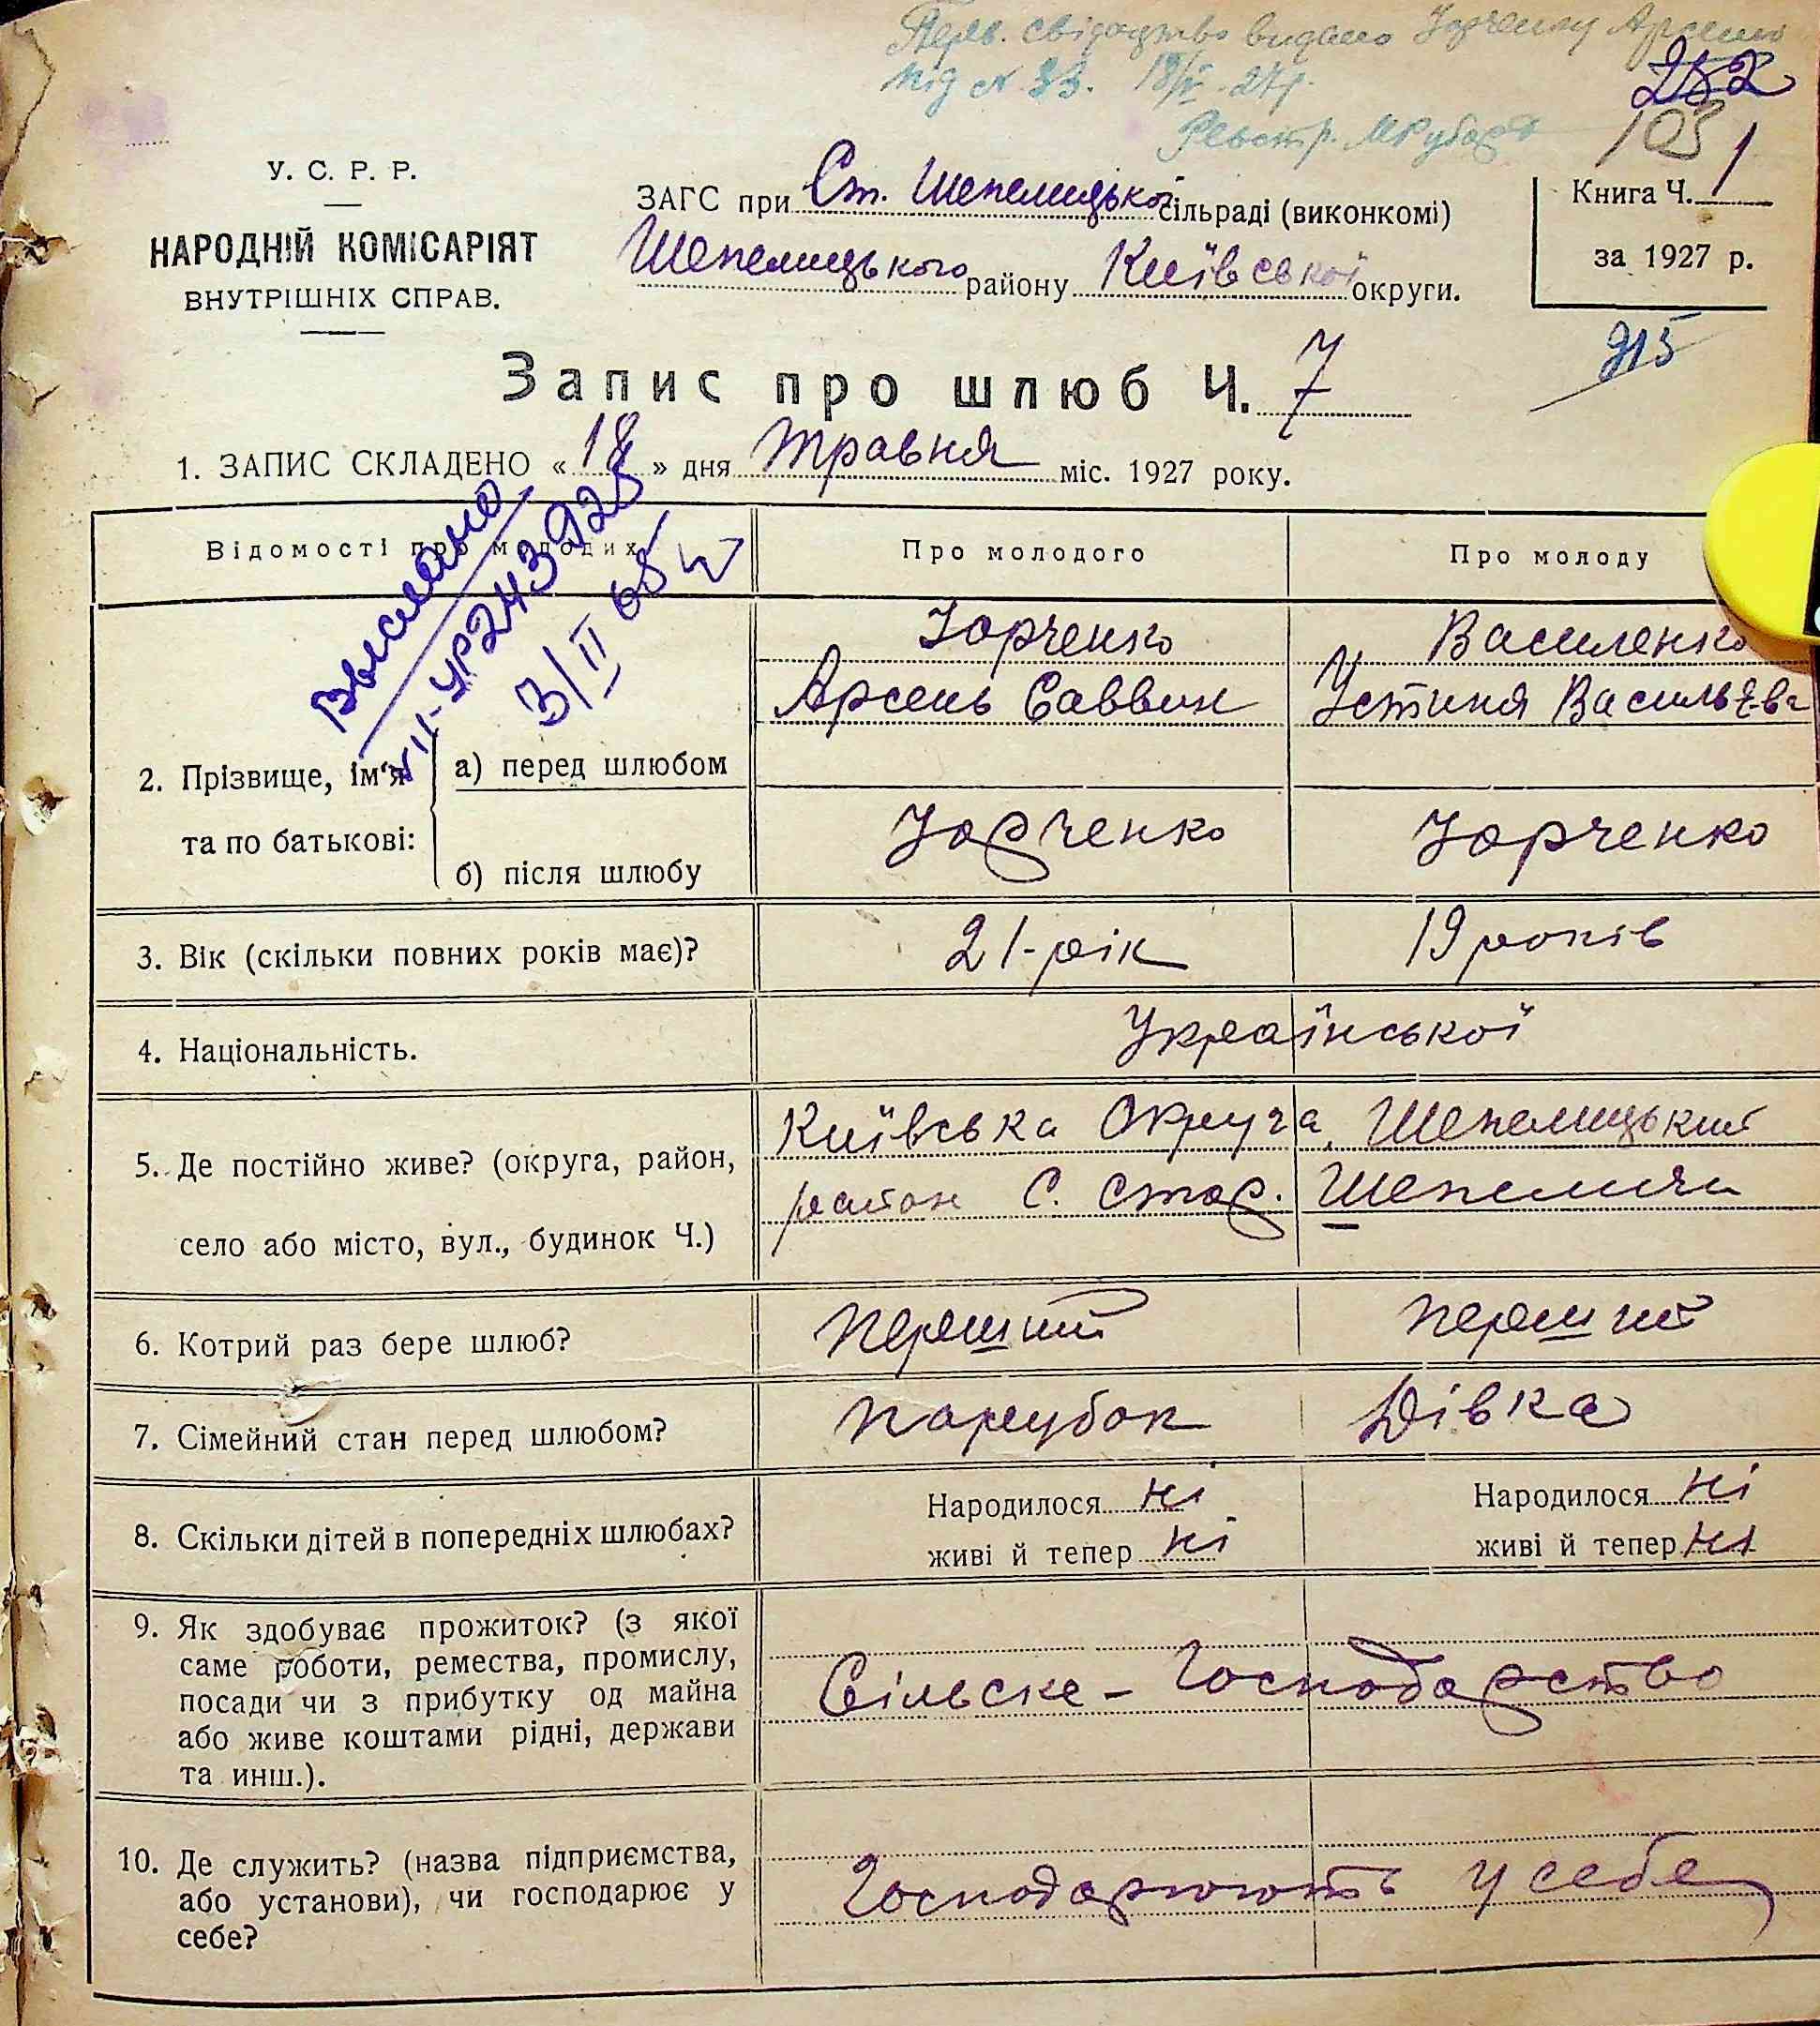 Перв. свідоцтво видано Юрченку Арсенію
під № 33. 18/V. 27 р.
Реєстр.
252
103
У. С. Р. Р.
НАРОДНІЙ КОМІСАРІЯТ
ВНУТРІШНІХ СПРАВ.
ЗАГС при Ст. Шепелицької сільраді (виконкомі)
Шепелицького району Київської округи.
Книга Ч. 1
за 1927 р.
915
Запис про шлюб Ч. 7
1. ЗАПИС СКЛАДЕНО «18» дня травня міс. 1927 року.
Выслано
VII-УР 243928
3/II 65
Відомості про молодих
Про молодого
Про молоду
Юрченко
Василенко
Арсень Саввин
Устиня Васильєва
2. Прізвище, ім'я
та по батькові:
а) перед шлюбом
б) після шлюбу
Юрченко
Юрченко
3. Вік (скільки повних років має)?
21-рік
19 років
4. Національність.
Української
5. Де постійно живе? (округа, район,
село або місто, вул., будинок Ч.)
Київська Округа, Шепелицький
район С. Стар. Шепеличи
6. Котрий раз бере шлюб?
перший
перший
7. Сімейний стан перед шлюбом?
парубок
Дівка
8. Скільки дітей в попередніх шлюбах?
Народилося ні
живі й тепер ні
Народилося ні
живі й тепер ні
9. Як здобуває прожиток? (з якої
саме роботи, ремества, промислу,
посади чи з прибутку од майна
або живе коштами рідні, держави
та инш.).
Сільске - Господарство
10. Де служить? (назва підприємства,
або установи), чи господарює у
себе?
Господарюють у себе